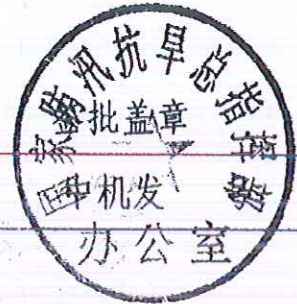 国家防汛抗旱总指挥部
签批盖章
中机发
办公室